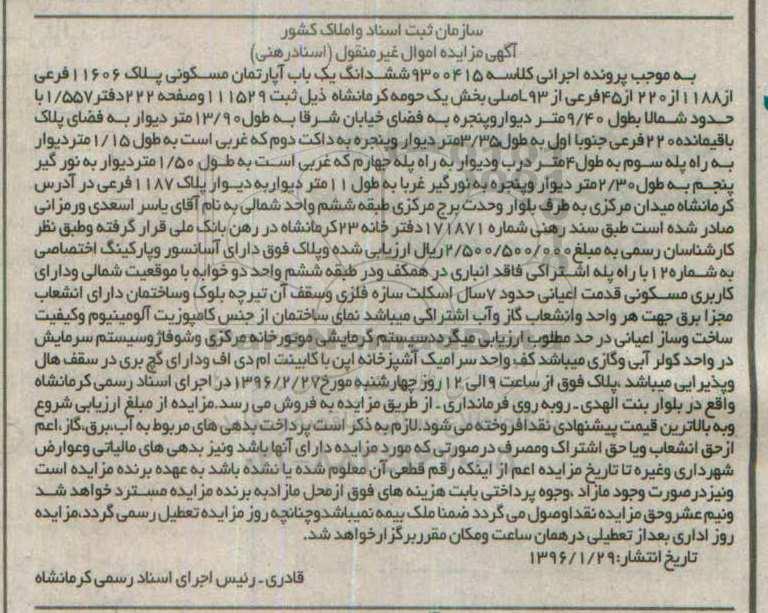 سازمان ثبت اسناد واملاک کشور
آگهی مزایده اموال غیرمنقول (اسنادرهنی)
به موجب پرونده اجرائی کلاسه ۹۳۰۰۴۱۵ ششدانگ یک باب آپارتمان مسکونی پلاک ۱۱۶۰۶فرعی
از۱۱۸۸از۲۲۰ از۴۵فرعی از ۹۳ـاصلی بخش یک حومه کرمانشاه ذیل ثبت ۱۱۱۵۲۹وصفحه ۲۲۲دفتر۱/۵۵۷با
حدود شمالا بطول ۹/۴۰متر دیواروپنجره به فضای خیابان شرقا به طول۱۳/۹۰متر دیوار به فضای پلاک
باقیمانده۲۲۰فرعی جنوبا اول به طول۳/۳۵متر دیوار وپنجره به داکت دوم که غربی است به طول ۱/۱۵متردیوار
به راه پله سوم به طول۴متر درب ودیوار به راه پله چهارم که غربی است به طول ۱/۵۰متردیوار به نور گیر
پنجم به طول۲/۳۰متر دیوار وپنجره به نورگیر غربا به طول ۱۱متر دیواربه دیوار پلاک ۱۱۸۷فرعی در آدرس
کرمانشاه میدان مرکزی به طرف بلوار وحدت برج مرکزی طبقه ششم واحد شمالی به نام آقای یاسر اسعدی ورمزانی
صادر شده است طبق سند رهنی شماره ۱۷۱۸۷۱دفتر خانه ۲۳کرمانشاه در رهن بانک ملی قرار گرفته وطبق نظر
کارشناسان رسمی به مبلغ ۲/۵۰۰/۵۰۰/۰۰۰ریال ارزیابی شده وپلاک فوق دارای آسانسور وپارکینگ اختصاصی
به شماره۱۲با راه پله اشتراکی فاقد انباری در همکف ودر طبقه ششم واحد دو خوابه با موقعیت شمالی ودارای
کاربری مسکونی قدمت اعیانی حدود ۷سال اسکلت سازه فلزی وسقف آن تیرچه بلوک وساختمان دارای انشعاب
مجزا برق جهت هر واحد وانشعاب گاز وآب اشتراکی میباشد نمای ساختمان از جنس کامپوزیت آلومینیوم وکیفیت
ساخت وساز اعیانی در حد مطلوب ارزیابی میگرددسیستم گرمایشی موتورخانه مرکزی وشوفاژوسیستم سرمایش
در واحد کولر آبی وگازی میباشد کف واحد سرامیک آشپزخانه اپن با کابینت ام دی اف ودارای گچ بری در سقف هال
وپذیرایی میباشد .پلاک فوق از ساعت ۹الی ۱۲روز چهارشنبه مورخ۱۳۹۶/۲/۲۷در اجرای اسناد رسمی کرمانشاه
واقع در بلوار بنت الهدی ـ روبه روی فرمانداری ـ از طریق مزایده به فروش می رسد.مزایده از مبلغ ارزیابی شروع
وبه بالاترین قیمت پیشنهادی نقدافروخته می شود.لازم به ذکر است پرداخت بدهی های مربوط به آب،برق،گاز،اعم
ازحق انشعاب ویا حق اشتراک ومصرف درصورتی که مورد مزایده دارای آنها باشد ونیز بدهی های مالیاتی وعوارض
شهرداری وغیره تا تاریخ مزایده اعم از اینکه رقم قطعی آن معلوم شده یا نشده باشد به عهده برنده مزایده است
ونیزدر صورت وجود مازاد ،وجوه پرداختی بابت هزینه های فوق ازمحل مازادبه برنده مزایده مسترد خواهد شد
ونیم عشروحق مزایده نقداوصول می گردد ضمنا ملک بیمه نمیباشدوچنانچه روز مزایده تعطیل رسمی گردد،مزایده
روز اداری بعداز تعطیلی درهمان ساعت ومکان مقرربرگزارخواهد شد.
تاریخ انتشار:۱۳۹۶/۱/۲۹
قادری ـ رئیس اجرای اسناد رسمی کرمانشاه